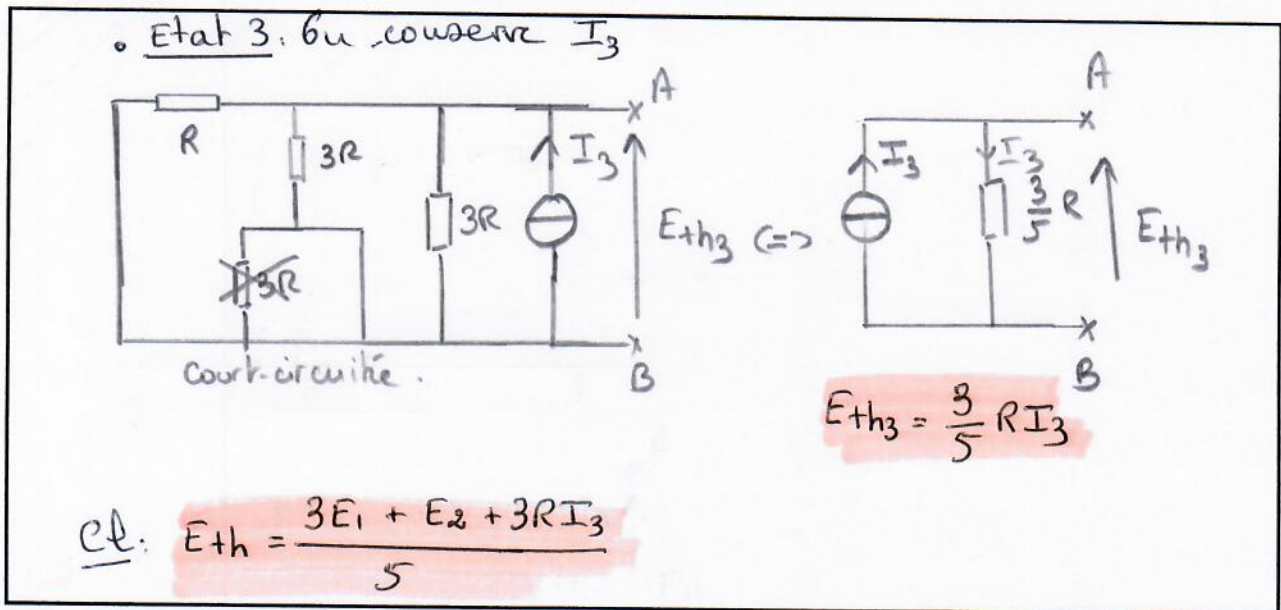 • Etat 3: On conserve I₃
R
3R
3R
3R
I₃
A
E_th₃
B
court-circuitée.
<=>
I₃
I₃
3/5 R
A
E_th₃
B
E_th₃ = 3/5 R I₃
Cl: E_th = (3E₁ + E₂ + 3RI₃)/5